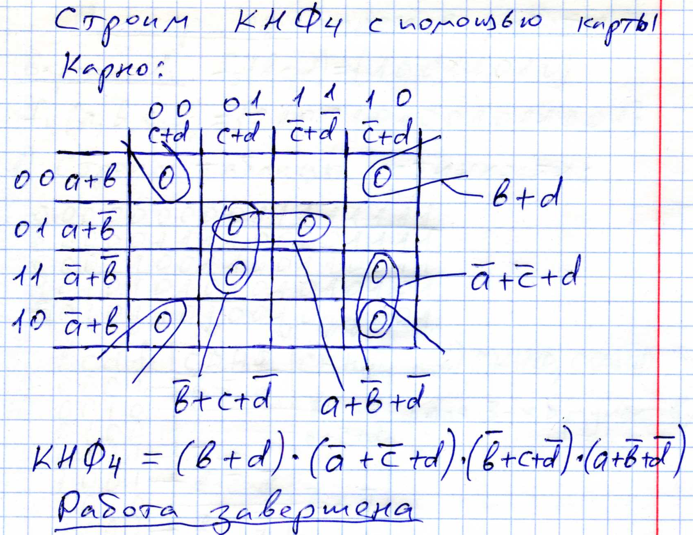 Строим КНФ4 с помощью карты
Карно:
00 01 11 10
c+d c+d̅ c̅+d̅ c̅+d
00 a+b 0 0 b+d
01 a+b̅ 0 0
11 a̅+b̅ 0 0 a̅+c̅+d
10 a̅+b 0 0
b̅+c+d̅ a+b̅+d̅
КНФ4 = (b+d)·(a̅+c̅+d)·(b̅+c+d̅)·(a+b̅+d̅)
Работа завершена